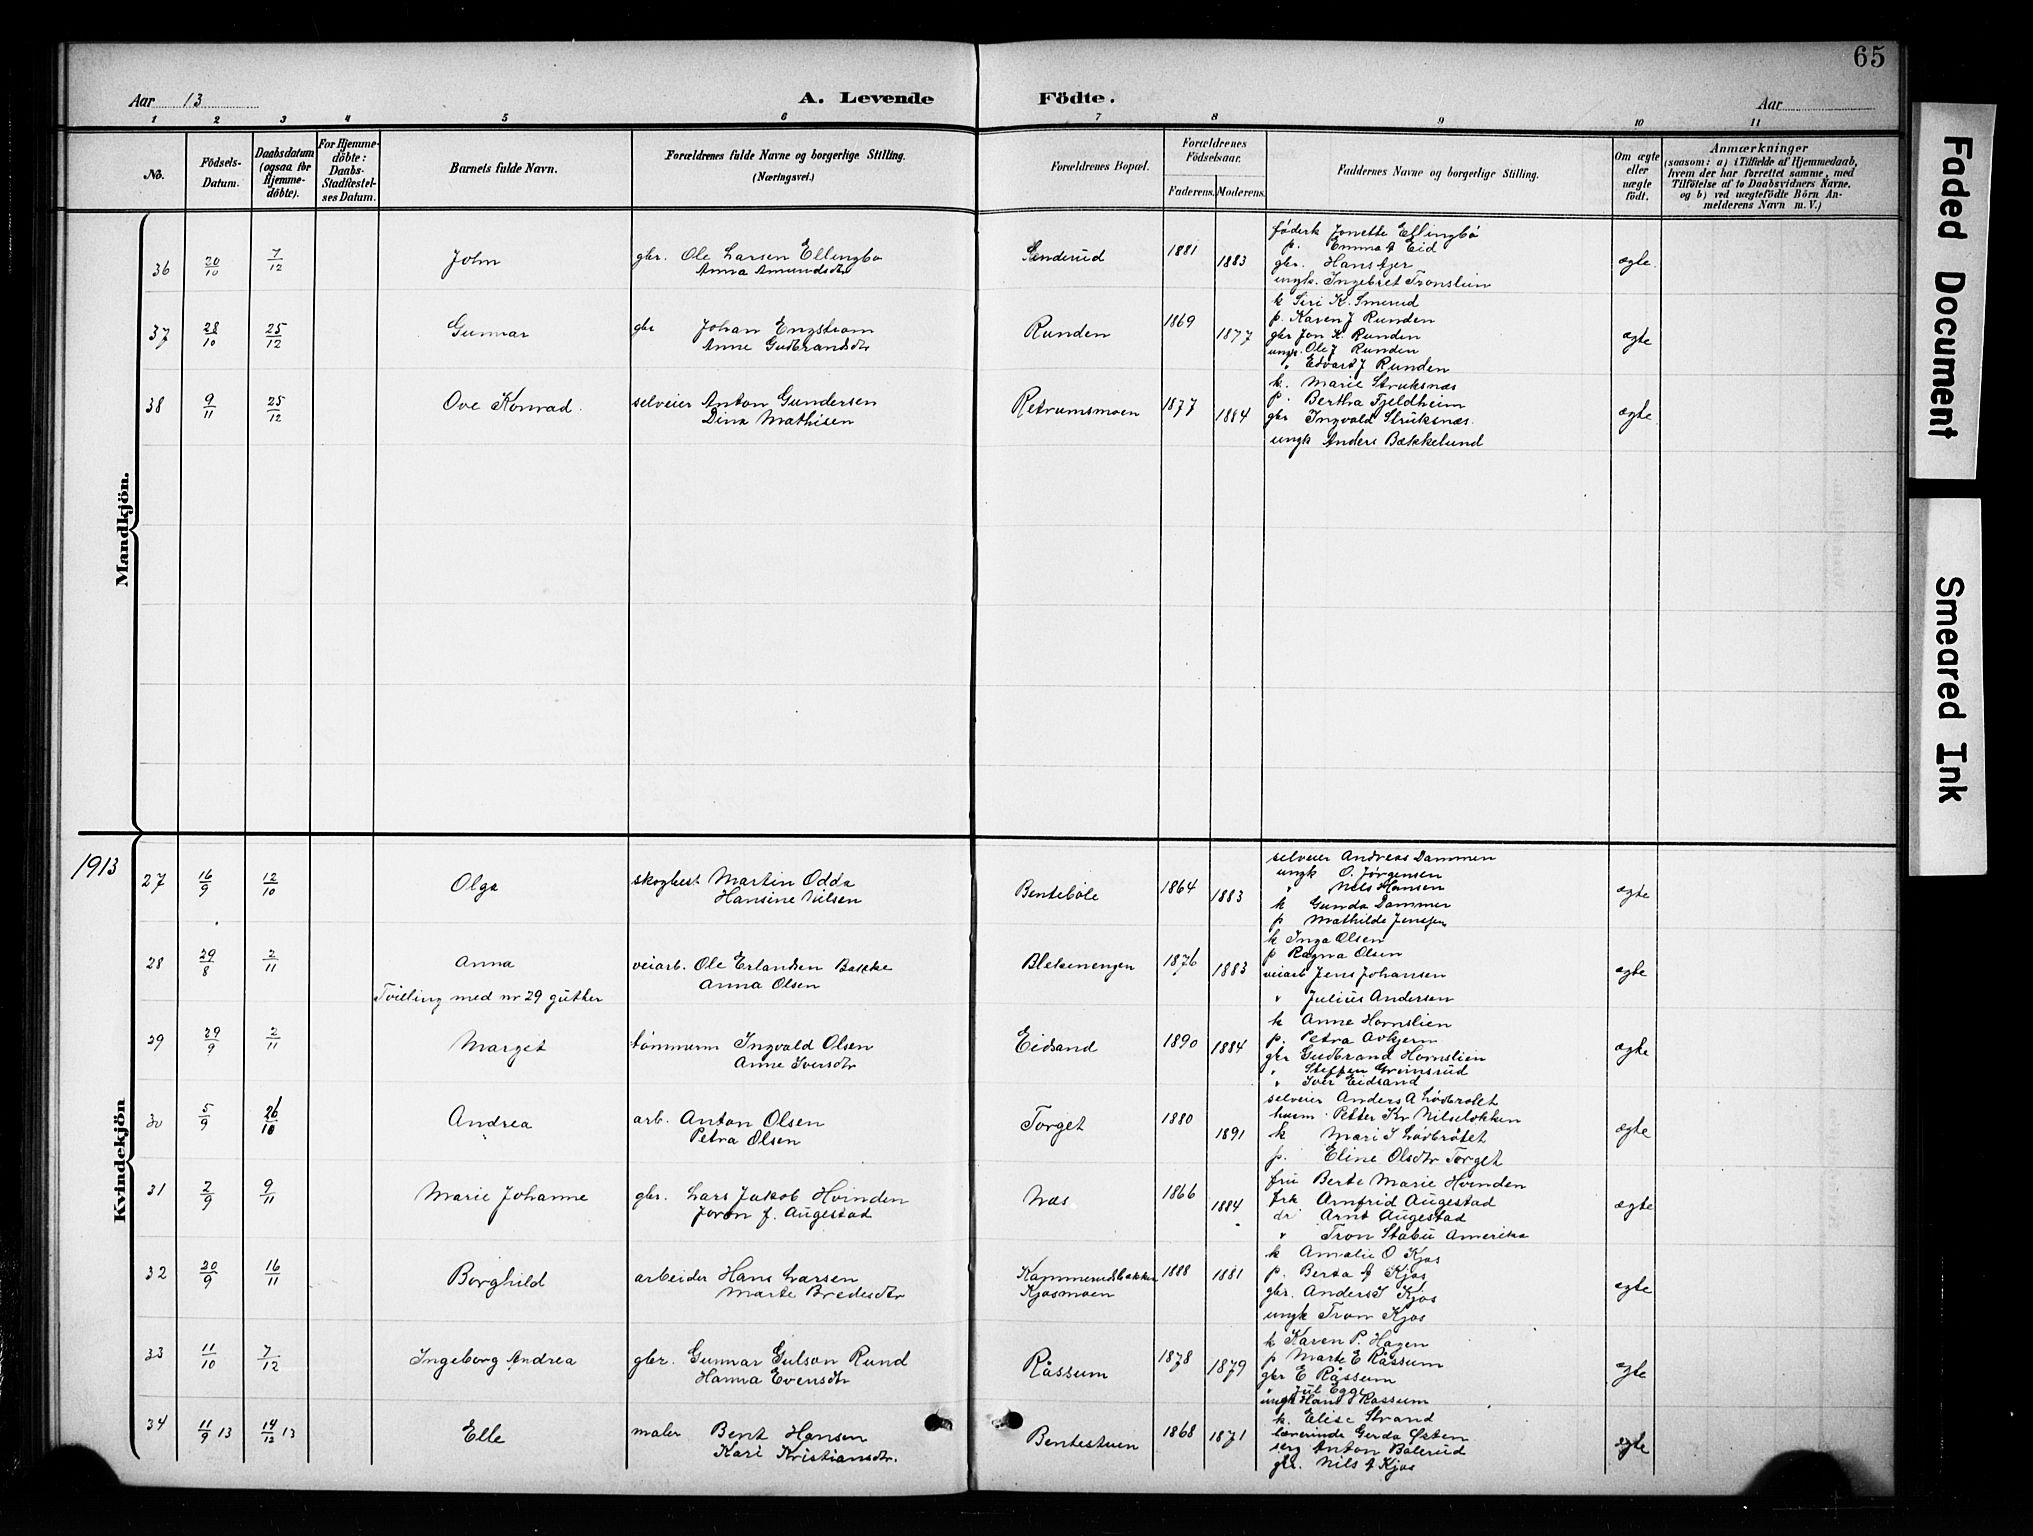 65
Aar 13
A. Levende Födte.
Aar
1 2 3 4 5 6 7 8 9 10 11
No.
Födsels-Datum.
Daabsdatum (ogsaa for Hjemme-döbte).
For Hjemme-döbte: Daabs-Stadfæstel-ses Datum.
Barnets fulde Navn.
Forældrenes fulde Navne og borgerlige Stilling. (Næringsvei.)
Forældrenes Bopæl.
Forældrenes Födselsaar.
Faderens. Moderens.
Faddernes Navne og borgerlige Stilling.
Om ægte eller uægte födt.
Anmærkninger
(saasom: a) i Tilfælde af Hjemmedaab, hvem der har forrettet samme, med Tilföielse af to Daabsvidners Navne, og b) ved uægtefödte Börn An-melderens Navn m. V.)
Mandkjön.
36 20/10 7/12 John gbr. Ole Larsen Ellingbø Enderud 1881 føderk Jonette Ellingbø
Anna Amundsdtr 1883 p. Emma Eid ægte
gbr. Hans Ajer
ungk. Ingebret Tronslien
37 28/10 25/12 Gunnar gbr Johan Engstrøm Runden 1869 k Siri K. Smerud
Anne Gudbrandsdtr 1877 p. Karen J Runden ægte
gbr Jon K. Runden
ungk. Ole J Runden
" Edvard J Runden
38 9/11 25/12 Ove Konrad selveier Anton Gundersen Retrumsmoen 1877 k. Marie Struksnæs
Dina Mathisen 1884 p. Bertha Fjeldheim ægte
gbr Ingvald Struksnæs.
ungk Anders Bækkelund
1913
Kvindekjön
27 16/9 12/10 Olga skogbest. Martin Odda Bentebøle 1864 selveier Andreas Dammen
Hansine Nilsen 1883 ungk O. Jørgensen ægte
" Nils Hansen
k Gunda Dammen
p Mathilde Jensen
28 29/8 2/11 Anna veiarb. Ole Erlandsen Bakke Blekenengen 1876 k Inga Olsen
Anna Olsen 1883 p Ragna Olsen ægte
Tvilling med nr 29 gutter veiarb Jens Johansen
" Julius Andersen
29 29/9 2/11 Marget tømmerm Ingvald Olsen Eidsand 1890 k Anne Hornslien
Anne Iversdtr 1884 p. Petra Avkjern ægte
gbr Gudbrand Hornslien
" Steffen Grimsrud
" Iver Eidsand
30 5/9 26/10 Andrea arb. Anton Olsen Torget 1880 selveier Anders A Lødbrøtet
Petra Olsen 1891 husm. Petter Kr Nilseløkken ægte
k Mari S Lødbrøtet
p. Eline Olsdtr Torget
31 2/9 9/11 Marie Johanne gbr. Lars Jakob Hvinden Næs 1866 fru Berte Marie Hvinden
Joron f. Augestad 1884 frk Arnfrid Augestad ægte
dr Arnt Augestad
" Tron Stabu Amerika
32 20/9 16/11 Borghild arbeider Hans Larsen Kammerudsbakken 1888 1881 k Amalie O Kjos
Marte Bredesdtr Kjosmoen p. Berta Kjos ægte
gbr. Anders J Kjos
ungk Tron Kjos
33 11/10 7/12 Ingeborg Andrea gbr. Gunnar Gulson Rund Råssum 1878 k Karen P. Hagen
Hanna Evensdtr 1879 p Marte E Råssum ægte
gbr E Råssum
" Jul Egge
ungk Hans Råssum
34 11/9 13 14/12 13 Elle maler Bent Hansen Bentestuen 1868 1871 k. Elise Strand
Kari Kristiansdtr. lærerinde Gerda Østern ægte
serg Anton Bølerud
gbr. Nils A Kjos
Faded Document
Smeared Ink